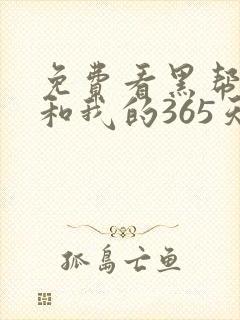 免费看黑帮
和我的365天
孤岛亡鱼